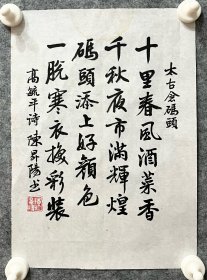 太古仓碼頭
十里春風酒菜香
千秋夜市滿輝煌
碼頭添上好顏色
一脫寒衣換彩裝
高毓平詩 陳昇陽书